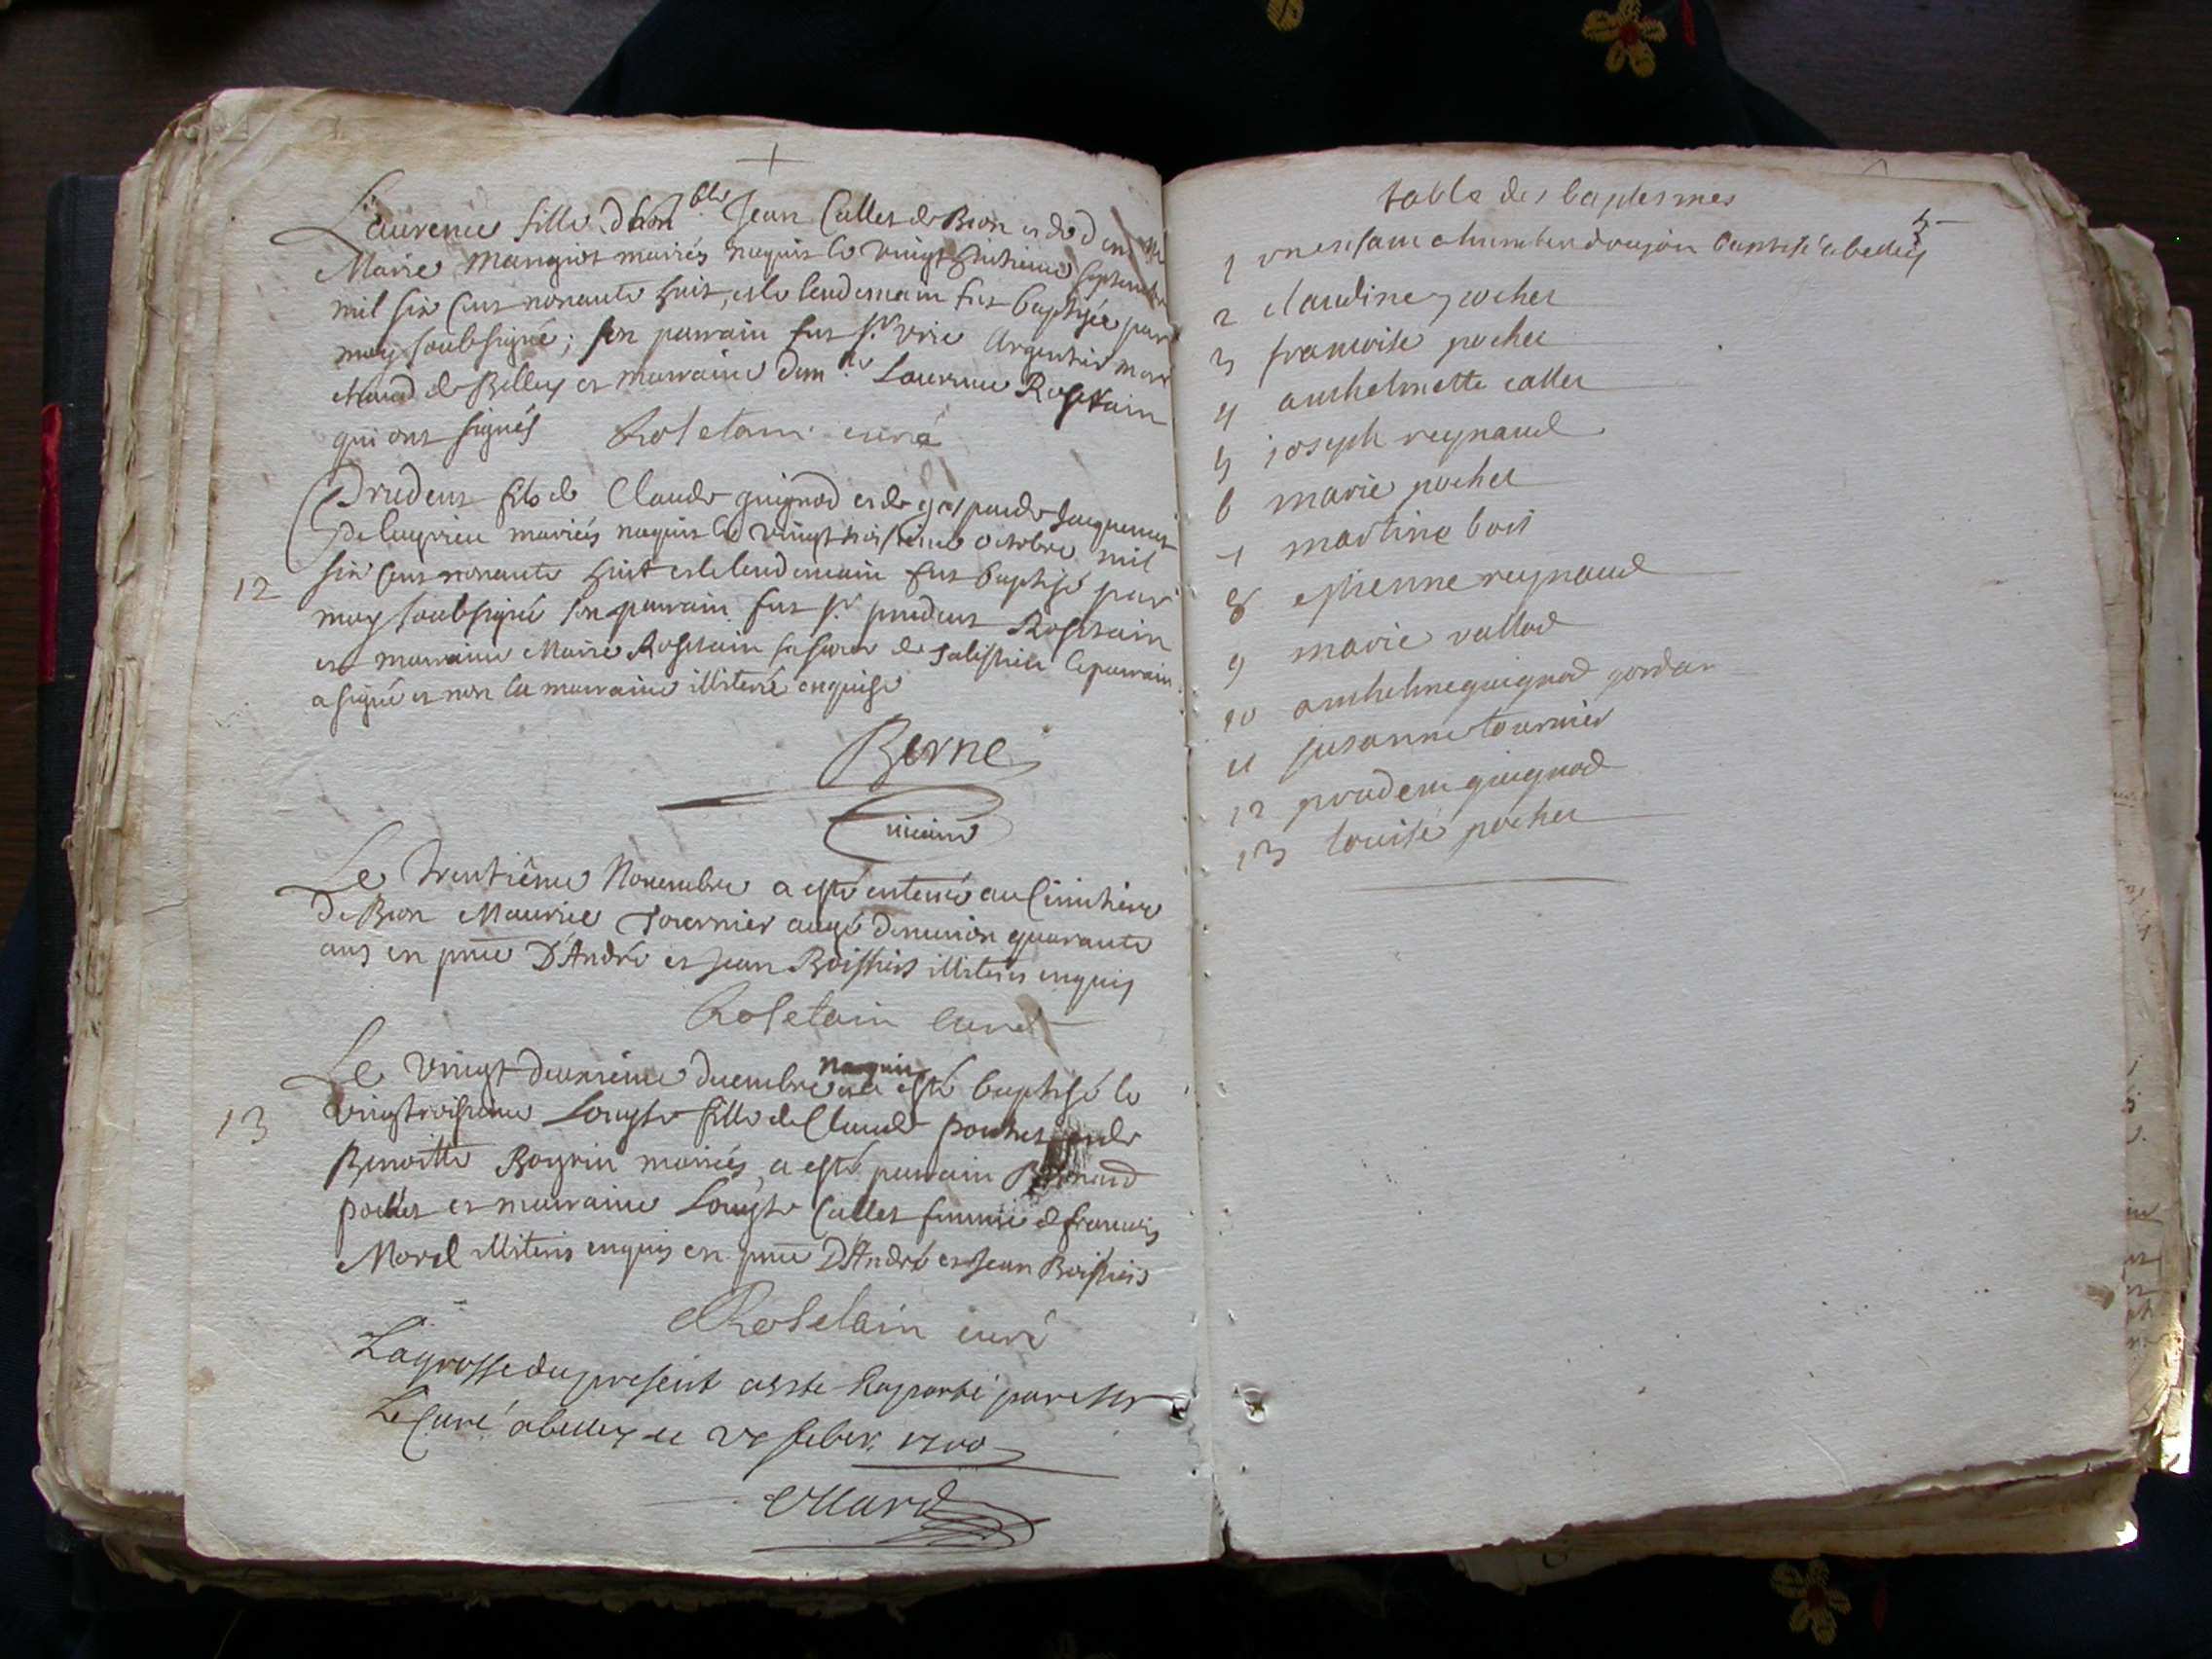 Laurence fille d'hon.ble Jean Callet de Bion et de dem.lle
Marie Mangiot mariés naquit le vingt huitieme septembre
mil six cens nonante huit, et le lendemain fut baptisée par
moy soubsigné; son parrain fut s.r Argentier mar
chand de Belley et marraine dem.lle Laurence Rosetain
qui ont signés Rosetain curé
Prudent fils de Claude guignod et de gasparde Jacquemet
de lugrieu mariés naquit le vingt troisieme octobre mil
12 six cens nonante huit et le lendemain fut baptisé par
moy soubsigné son parrain fut s.r prudent Rosetain
et marraine Marie Rosetain sa soeur de le parrain
a signé et non la marraine illiterée enquise
Berne
vicaire
Le trentiême Novembre a esté enterré au Cimitière
de Bion Maurice Tournier aagé d'environ quarante
ans en pnce D'André et Jean Boissieis illiteris enquis
Rosetain curé
Le vingt deuxiême decembre naquit et a esté baptisé le
13 vingtroisieme Louyse fille de Claude pochet et de
Benoitte Boyrin mariés, a esté parrain Bernard
pochet et marraine Louyse Callet femme de francois
Morel illiteris enquis en pnce D'André et Jean Boissieis
Rosetain curé
La grosse du present a este Raporté par ler
Le Curé a belley ce ve feber. 1700
table des baptesmes
5
1 un enfant a humbert doujon baptisé a belley
2 claudine pochet
3 francoise pochet
4 anthelmette callet
5 joseph reynaud
6 marie pochet
7 martine bois
8 estienne reynaud
9 marie vallod
10 anthelme guignod gordan
11 susanne tournier
12 prudent guignod
13 louise pochet